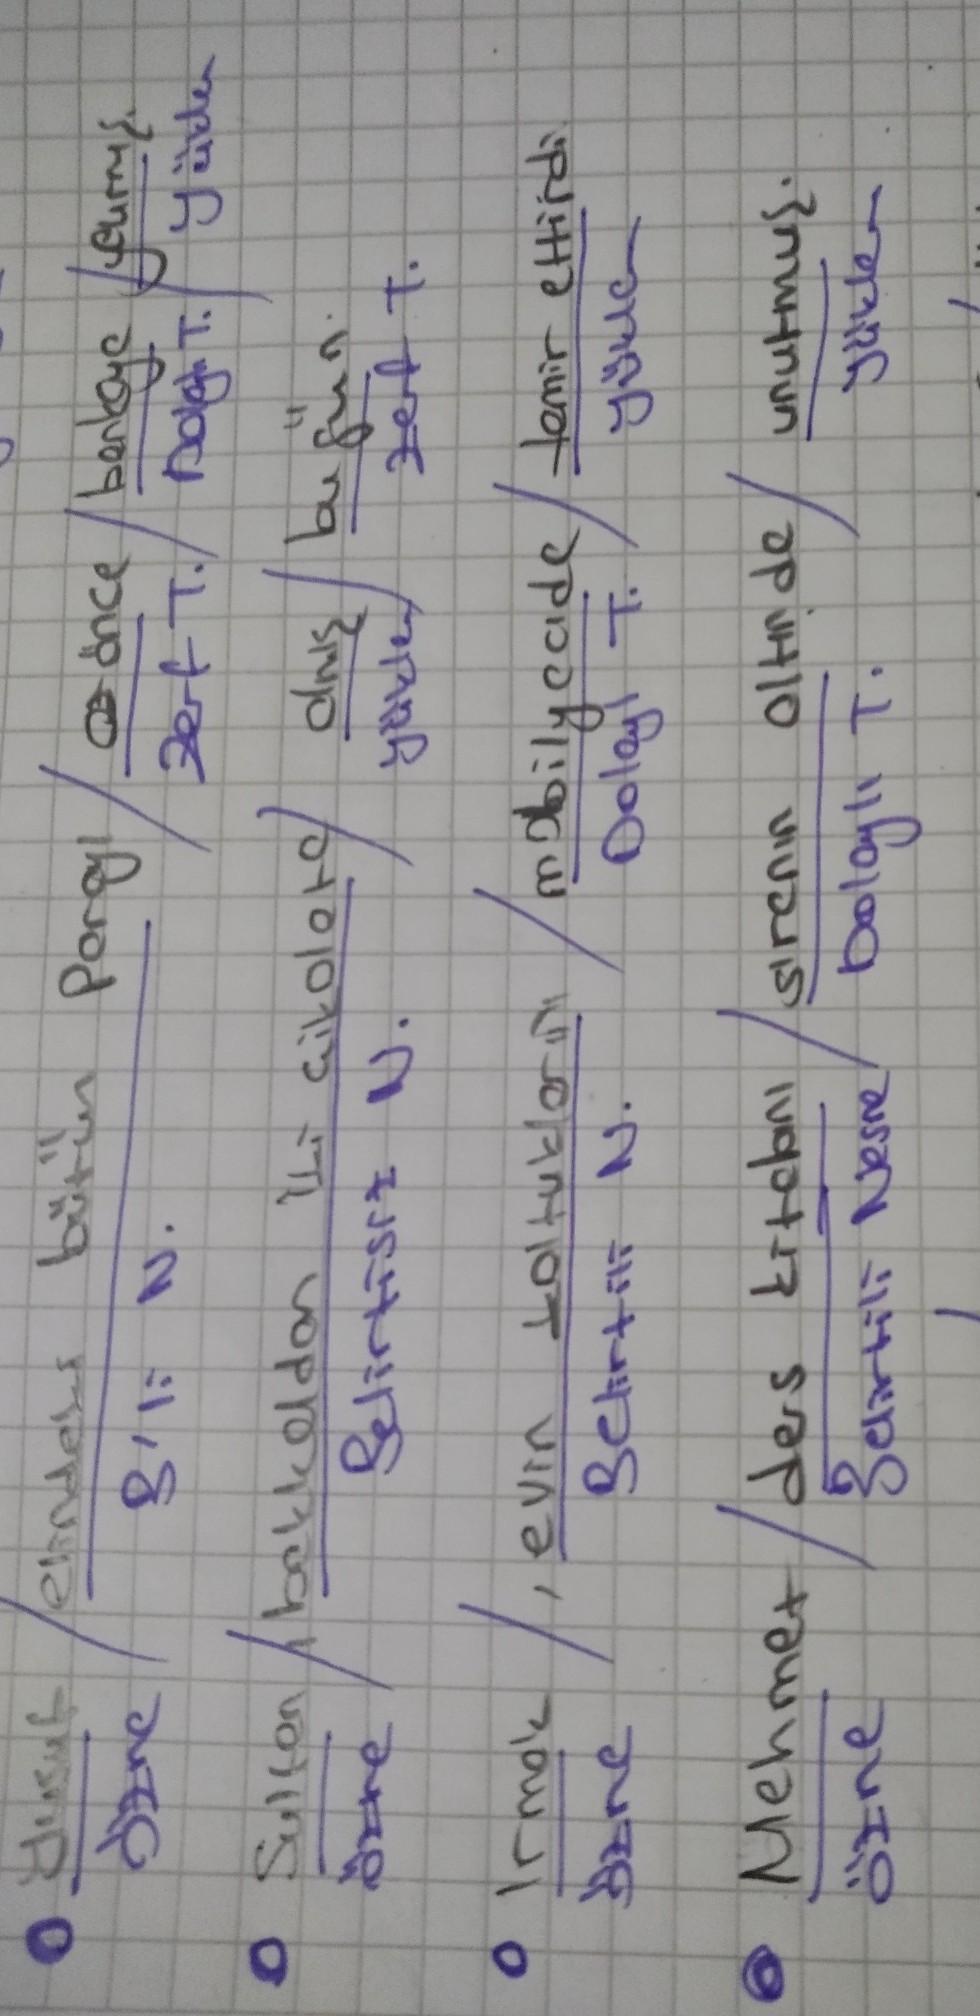 Yusuf / elindeki bütün parayı / önce / bankaya / yurmış.
Özne B, li N. Zarf T. Dolaylı T. Yüklem
Sultan /, bakkaldan iki çikolata / almış / bugün.
Özne Belirtisiz N. yüklem zarf T.
Irmak /, evin koltuklarını / mobilyacıda / tamir ettirdi.
Özne Belirtili N. Dolaylı T. Yüklem
Mehmet / ders kitabını / sıranın altında / unutmuş.
Özne Belirtili Nesne Dolaylı T. Yüklem